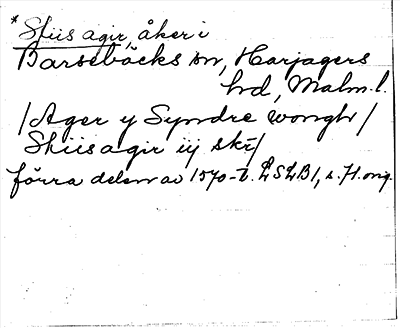 * Skiis agir, åker i
Barsebäcks sn, Harjagers
hd, Malm. l.
/Ager y Syndre wongh/
Skiis agir iij skr/
förra delen av 1570-t. LSLB1, s. 71. orig.